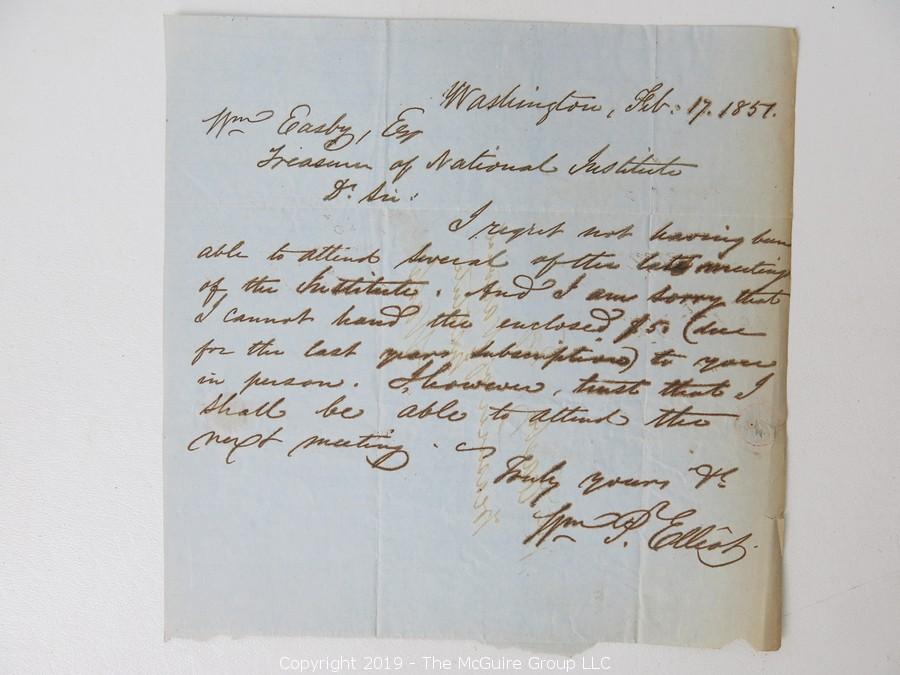 Washington, Feb: 17. 1851.
Wm Easby, Esq
Treasurer of National Institute
Dr. Sir:
I regret not having been
able to attend several of the late meeting
of the Institute. And I am sorry that
I cannot hand the enclosed $5 (due
for the last years subscription) to you
in person. I, however, trust that I
shall be able to attend the
next meeting.
Truly yours &c
Wm P. Elliot.
Copyright 2019 - The McGuire Group LLC